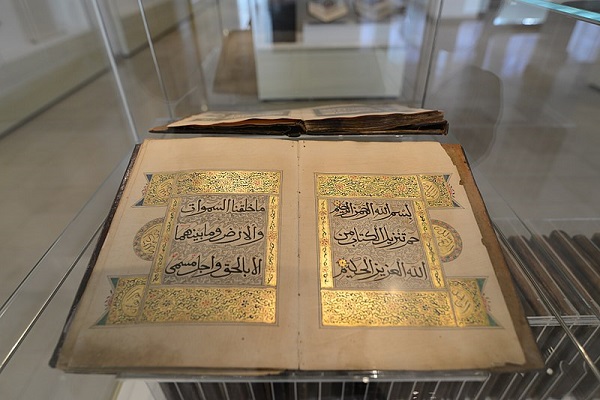 بسم الله الرحمن الرحيم
حم تنزيل الكتاب من
الله العزيز الحكيم
ما خلقنا السموات
والارض وما بينهما
الا بالحق واجل مسمى